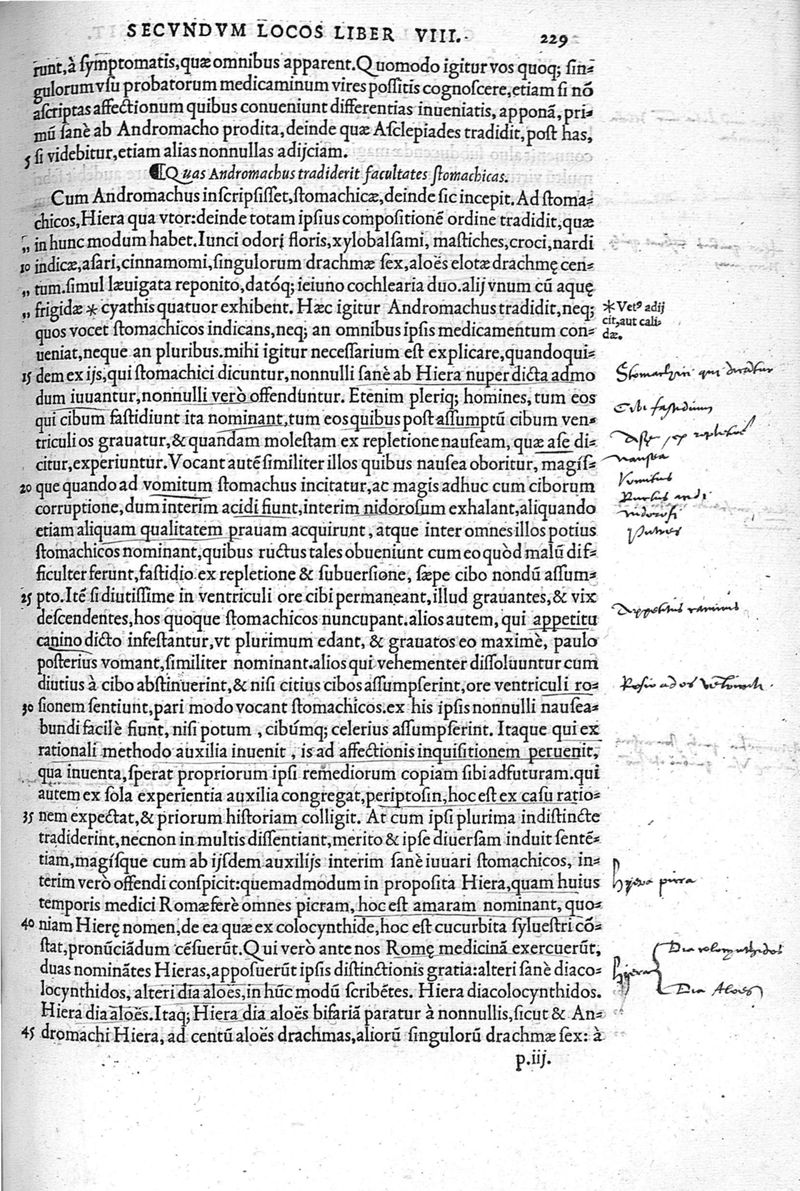 SECVNDVM LOCOS LIBER VIII. 229
runt, à ſymptomatis, quæ omnibus apparent. Quomodo igitur vos quoq; ſin⸗
gulorum vſu probatorum medicaminum vires poſsitis cognoſcere, etiam ſi nõ
aſcriptas affectionum quibus conueniunt differentias inueniatis, apponã, pri⸗
mũ ſanè ab Andromacho prodita, deinde quæ Aſclepiades tradidit, poſt has,
5 ſi videbitur, etiam alias nonnullas adijciam.
¶Quas Andromachus tradiderit facultates ſtomachicas.
Cum Andromachus inſcripſiſſet, ſtomachicæ, deinde ſic incepit. Ad ſtoma⸗
chicos, Hiera qua vtor: deinde totam ipſius compoſitionẽ ordine tradidit, quæ
„ in hunc modum habet. Iunci odori floris, xylobalſami, maſtiches, croci, nardi
10 indicæ, aſari, cinnamomi, ſingulorum drachmæ ſex, aloës elotæ drachmę cen⸗
„ tum. ſimul læuigata reponito, datóq; ieiuno cochlearia duo. alij vnum cũ aquę
„ frigidæ * cyathis quatuor exhibent. Hæc igitur Andromachus tradidit, neq;
* Vetꝰ adij
cit, aut cali⸗
dæ.
quos vocet ſtomachicos indicans, neq; an omnibus ipſis medicamentum con⸗
ueniat, neque an pluribus. mihi igitur neceſſarium eſt explicare, quandoqui⸗
15 dem ex ijs, qui ſtomachici dicuntur, nonnulli ſanè ab Hiera nuper dicta admo
Stomachici qui dicantur
dum iuuantur, nonnulli verò offenduntur. Etenim pleriq; homines, tum eos
qui cibum faſtidiunt ita nominant, tum eos quibus poſt aſſumptũ cibum ven⸗
Cibi faſtidium
triculi os grauatur, & quandam moleſtam ex repletione nauſeam, quæ aſe di⸗
citur, experiuntur. Vocant autẽ ſimiliter illos quibus nauſea oboritur, magíſ⸗
nauſea
20 que quando ad vomitum ſtomachus incitatur, ac magis adhuc cum ciborum
Vomitus
corruptione, dum interim acidi fiunt, interim nidoroſum exhalant, aliquando
nidoroſi
etiam aliquam qualitatem prauam acquirunt, atque inter omnes illos potius
ſtomachicos nominant, quibus ructus tales obueniunt cum eo quòd malũ dif⸗
ficulter ferunt, faſtidio ex repletione & ſubuerſione, ſæpe cibo nondũ aſſum⸗
25 pto. Itẽ ſi diutiſsime in ventriculi ore cibi permaneant, illud grauantes, & vix
deſcendentes, hos quoque ſtomachicos nuncupant. alios autem, qui appetitu
Appetitus caninus
canino dicto infeſtantur, vt plurimum edant, & grauatos eo maximè, paulo
poſterius vomant, ſimiliter nominant. alios qui vehementer diſſoluuntur cum
diutius à cibo abſtinuerint, & niſi citius cibos aſſumpſerint, ore ventriculi ro⸗
30 ſionem ſentiunt, pari modo vocant ſtomachicos. ex his ipſis nonnulli nauſea⸗
bundi facilè fiunt, niſi potum, cibúmq; celerius aſſumpſerint. Itaque qui ex
rationali methodo auxilia inuenit, is ad affectionis inquiſitionem peruenit,
qua inuenta, ſperat propriorum ipſi remediorum copiam ſibi adfuturam. qui
autem ex ſola experientia auxilia congregat, periptoſin, hoc eſt ex caſu ratio⸗
35 nem expectat, & priorum hiſtoriam colligit. At cum ipſi plurima indiſtincte
tradiderint, necnon in multis diſſentiant, merito & ipſe diuerſam induit ſentẽ⸗
tiam, magíſque cum ab ijſdem auxilijs interim ſanè iuuari ſtomachicos, in⸗
terim verò offendi conſpicit: quemadmodum in propoſita Hiera, quam huius
Hyera picra
temporis medici Romæ ferè omnes picram, hoc eſt amaram nominant, quo⸗
40 niam Hierę nomen, de ea quæ ex colocynthide, hoc eſt cucurbita ſylueſtri cõ⸗
ſtat, pronũciãdum cẽſuerũt. Qui verò ante nos Romę medicinã exercuerũt,
Hyera
Dia colocynthidos
duas nominãtes Hieras, appoſuerũt ipſis diſtinctionis gratia: alteri ſanè diaco⸗
locynthidos, alteri dia aloës, in hũc modũ ſcribẽtes. Hiera diacolocynthidos.
Dia Aloes
Hiera dia aloës. Itaq; Hiera dia aloës bifariã paratur à nonnullis, ſicut & An⸗
45 dromachi Hiera, ad centũ aloës drachmas, aliorũ ſingulorũ drachmæ ſex: à
p.iij.